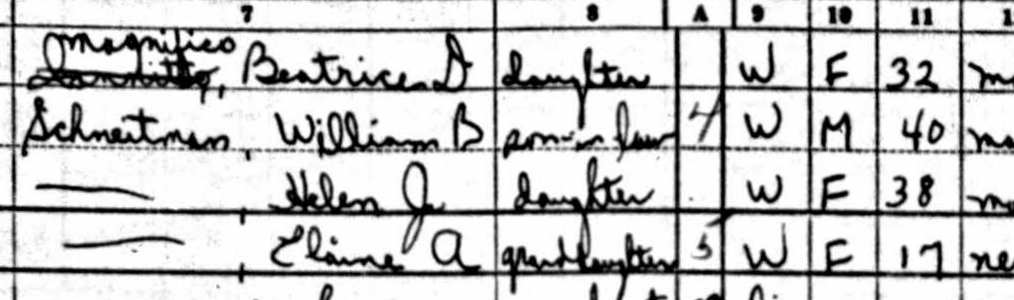 7 8 A 9 10 11
magnifico
Beatrice D daughter W F 32
Schneitman, William B son in law 4 W M 40
— Helen J daughter W F 38
— Elaine A granddaughter 5 W F 17 ne